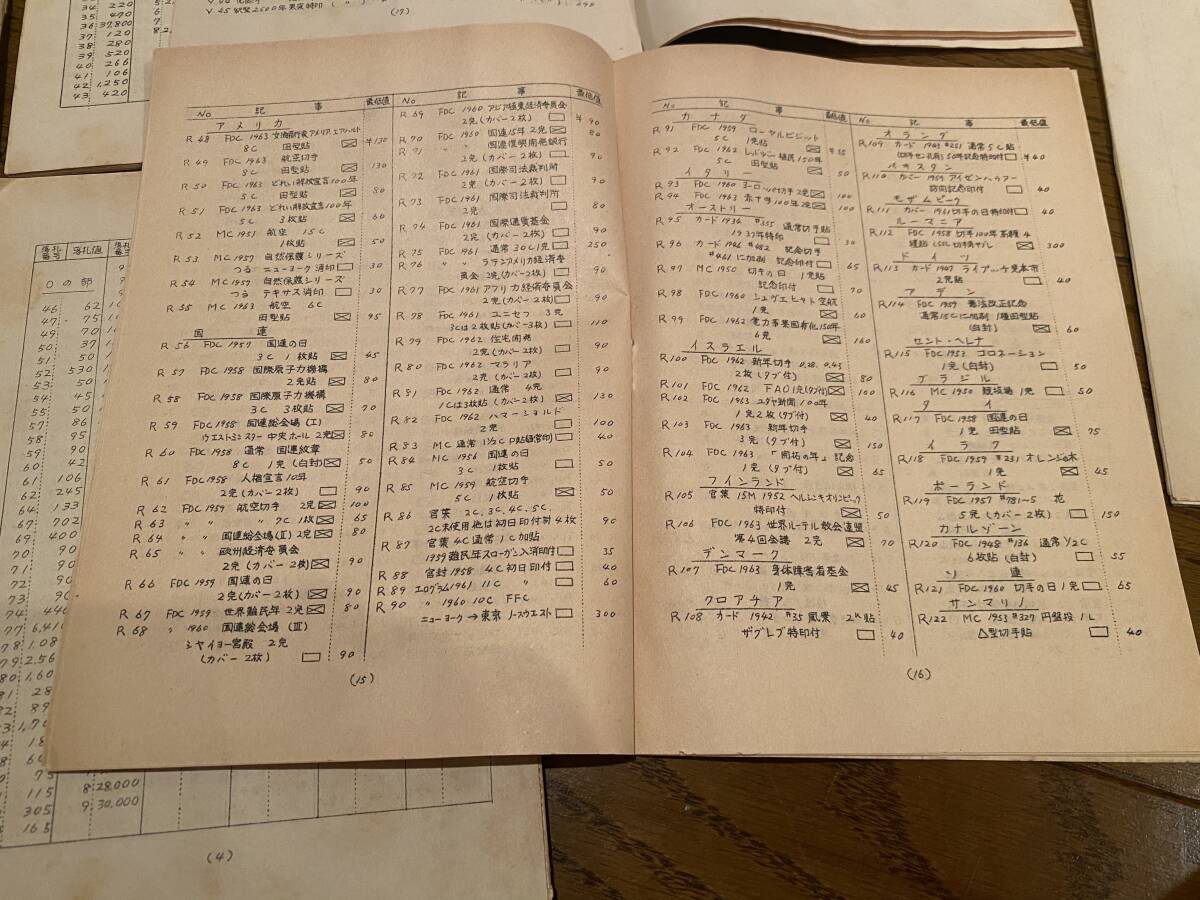 34 220
35 470
36 37,800
37 120
38 280
39 520
40 266
41 106
42 1,250
43 420
(17)
No 記事 最低値
アメリカ
R 48 FDC 1963 女流飛行家アメリア エアハルト
8C 田型貼 ¥130
R 49 FDC 1963 航空切手
8C 田型貼 130
R 50 FDC 1963 どれい解放宣言100年
5C 田型貼 80
R 51 FDC 1963 どれい解放宣言100年
5C 3枚貼 60
R 52 MC 1951 航空 15C
1枚貼 50
R 53 MC 1957 自然保護シリーズ
つる ニューヨーク消印 30
R 54 MC 1957 自然保護シリーズ
つる テキサス消印 30
R 55 MC 1963 航空 6C
田型貼 95
国連
R 56 FDC 1957 国連の日
3C 1枚貼 45
R 57 FDC 1958 国際原子力機構
2完貼 80
R 58 FDC 1958 国際原子力機構
3C 3枚貼 70
R 59 FDC 1958 国連総会場 (I)
ウエストミンスター中央ホール 2完 80
R 60 FDC 1958 通常 国連紋章
8C 1完 (白封) 50
R 61 FDC 1958 人権宣言10年
2完 (カバー2枚) 90
R 62 FDC 1959 航空切手 2完 100
R 63 〃 〃 〃 7C 1枚 65
R 64 〃 〃 国連総会場(II) 2完 80
R 65 〃 〃 欧州経済委員会
2完 (カバー2枚) 90
R 66 FDC 1959 国連の日
2完 (カバー2枚) 90
R 67 FDC 1959 世界難民年 2完 80
R 68 〃 1960 国連総会場 (III)
シャイヨー宮殿 2完
(カバー2枚) 90
No 記事 最低値
R 69 FDC 1960 アジア極東経済委員会
2完 (カバー2枚) ¥90
R 70 FDC 1960 国連15年 2完 80
R 71 〃 〃 国際復興開発銀行
2完 (カバー2枚) 90
R 72 FDC 1961 国際司法裁判所
2完 (カバー2枚) 90
R 73 FDC 1961 国際司法裁判所
2完 80
R 74 FDC 1961 国際通貨基金
2完 (カバー2枚) 90
R 75 FDC 1961 通常30C1完 250
R 76 〃 〃 ラテンアメリカ経済委
員会 2完 (カバー2枚) 90
R 77 FDC 1961 アフリカ経済委員会
2完 (カバー2枚) 90
R 78 FDC 1961 ユニセフ 3完
3Cは2枚貼 (カバー3枚) 110
R 79 FDC 1962 住宅開発
2完 (カバー2枚) 90
R 80 FDC 1962 マラリア
2完 (カバー2枚) 90
R 81 FDC 1962 通常 4完
1Cは3枚貼 (カバー2枚) 130
R 82 FDC 1962 ハマーショルド
2完 100
R 83 MC 通常1½C P貼 40
R 84 MC 1956 国連の日
3C 1枚貼 50
R 85 MC 1959 航空切手
5C 1枚貼 50
R 86 官葉 2C, 3C, 4C, 5C.
2C未使用他は初日印付 計4枚 90
R 87 官葉 4C 通常 1C 加貼
1959難民年スローガン入消印付 35
R 88 官封 1958 4C 初日印付 40
R 89 エログラム 1961 11C 〃 60
R 90 〃 1960 10C FFC
ニューヨーク→東京 ノースウエスト 300
(15)
No 記事 最低値
カナダ
R 91 FDC 1959 ローヤルビジット
5C 1完貼 ¥35
R 92 FDC 1962 レッドリバー植民150年
5C 田型貼 50
イタリー
R 93 FDC 1960 ヨーロッパ切手 2完 100
R 94 FDC 1963 赤十字100年 2完 100
オーストリー
R 95 カード 1936 #355 通常切手貼
1937年特印 30
R 96 カード 1946 #482 記念切手
#461に加刷 記念印付 65
R 97 MC 1950 切手の日 1完貼
記念印付 70
R 98 FDC 1960 シュヴェヒャト空港
1完 60
R 99 FDC 1962 電力事業国有化150年
6完 160
イスラエル
R 100 FDC 1962 新年切手 0.28, 0.43
2枚 (タブ付) 80
R 101 FDC 1962 FAO 1完(タブ付) 100
R 102 FDC 1963 ユダヤ新聞100年
1完2枚 (タブ付) 40
R 103 FDC 1963 新年切手
3完 (タブ付) 150
R 104 FDC 1963 「開拓の年」記念
1完 (タブ付) 65
フィンランド
R 105 官葉 15M 1952 ヘルシンキオリンピック
特印付 50
R 106 FDC 1963 世界ルーテル教会連盟
第4回会議 2完 70
デンマーク
R 107 FDC 1963 身体障害者基金
1完 45
クロアチア
R 108 カード 1942 #35 風景 2K貼
ザグレブ特印付 40
No 記事 最低値
オランダ
R 109 カード 1943 #251 通常5C貼
50年記念特印付 ¥40
パキスタン
R 110 カバー 1959 アイゼンハウアー
訪問記念印付 40
モザムビーク
R 111 カバー 1961 切手の日特印付 40
ルーマニア
R 112 FDC 1958 切手100年 高額4
種貼 300
ドイツ
R 113 カード 1947 ライプニッチ見本市
2完貼 40
アデン
R 114 FDC 1959 憲法改正記念
通常15Cに加刷 1種田型貼
(白封) 60
セント・ヘレナ
R 115 FDC 1953 コロネーション
1完 (白封) 50
ブラジル
R 116 MC 1950 競技場 1完 50
タイ
R 117 FDC 1958 国連の日
1完 田型貼 75
イラク
R 118 FDC 1959 #231 オレンジの木
1完 45
ポーランド
R 119 FDC 1957 #781~5 花
5完 (カバー2枚) 150
カナルゾーン
R 120 FDC 1948 #136 通常½C
6枚貼 (白封) 55
ソ連
R 121 FDC 1960 切手の日 1完 65
サンマリノ
R 122 MC 1953 #327 円盤投 1L
△型切手貼 40
(16)
落札番号 落札値
Oの部
46 62
47 75
49 70
50 51
51 530
53 50
54 45
55 50
57 86
58 95
60 42
61 106
62 245
64 133
67 702
69 400
70 90
71 90
72 90
73 90
74 440
77 6,410
115 8 28,000
305 9 30,000
165
(4)